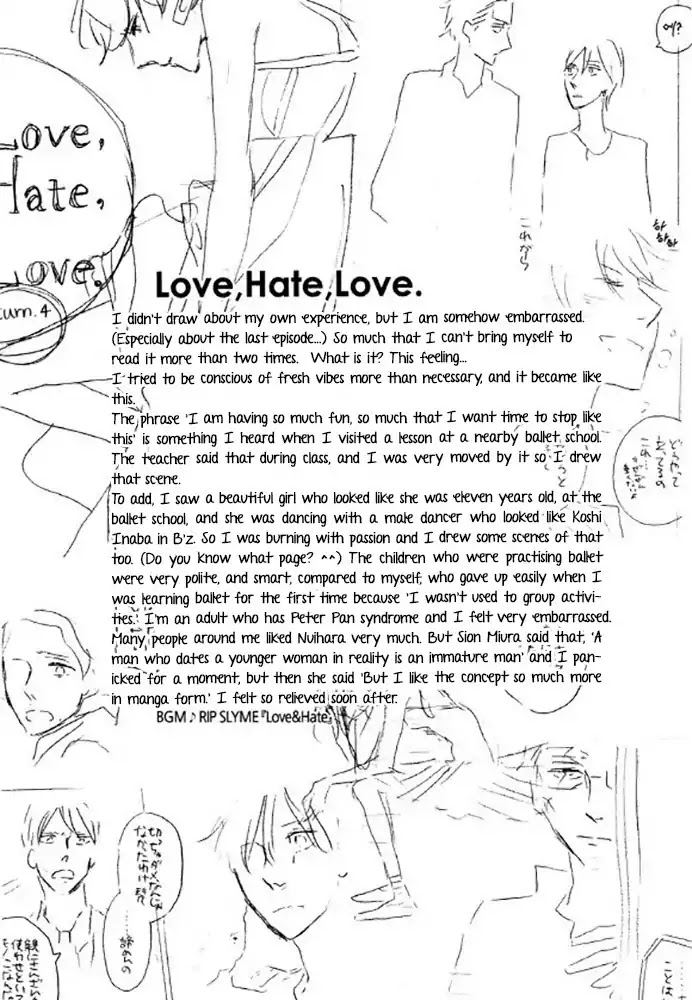 에?
Love,
Hate,
Love.
これから
하
하하
하하
Love,Hate,Love.
I didn't draw about my own experience, but I am somehow embarrassed.
(Especially about the last episode...) So much that I can't bring myself to
read it more than two times. What is it? This feeling...
I tried to be conscious of fresh vibes more than necessary, and it became like
this.
The phrase 'I am having so much fun, so much that I want time to stop like
this' is something I heard when I visited a lesson at a nearby ballet school.
The teacher said that during class, and I was very moved by it so I drew
that scene.
To add, I saw a beautiful girl who looked like she was eleven years old, at the
ballet school, and she was dancing with a male dancer who looked like Koshi
Inaba in B'z. So I was burning with passion and I drew some scenes of that
too. (Do you know what page? ^^) The children who were practising ballet
were very polite, and smart, compared to myself, who gave up easily when I
was learning ballet for the first time because 'I wasn't used to group activi-
ties.' I'm an adult who has Peter Pan syndrome and I felt very embarrassed.
Many people around me liked Nuihara very much. But Sion Miura said that, 'A
man who dates a younger woman in reality is an immature man' and I pan-
icked for a moment, but then she said 'But I like the concept so much more
in manga form.' I felt so relieved soon after.
BGM♪RIP SLYME『Love&Hate』
諦めの